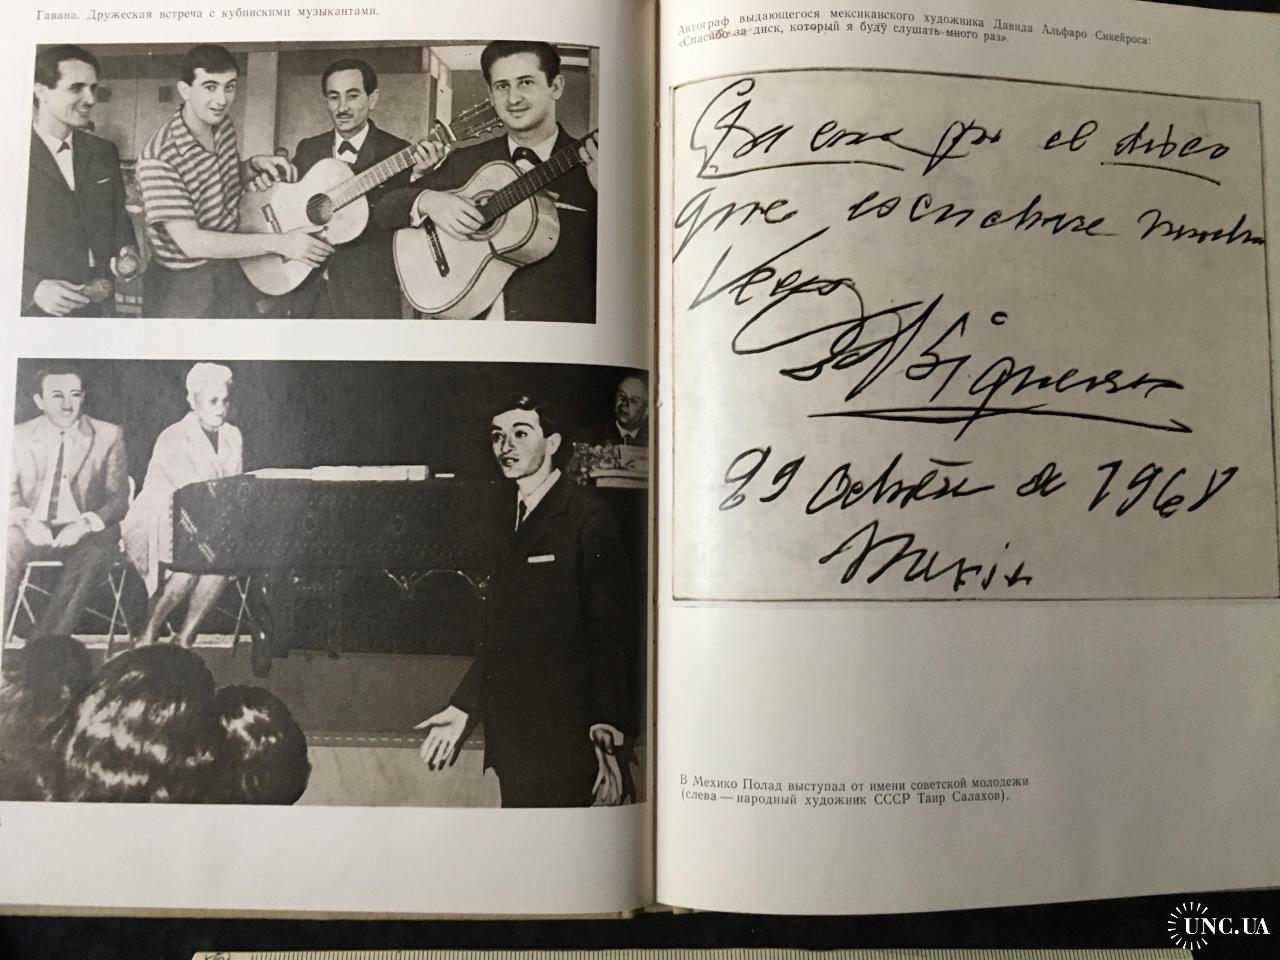 Гавана. Дружеская встреча с кубинскими музыкантами.
Автограф выдающегося мексиканского художника Давида Альфаро Сикейроса:
«Спасибо за диск, который я буду слушать много раз».
por el disco
que escuchare mucha
Veces
Siqueiros
29 Octubre de 1968
Mexico
В Мехико Полад выступал от имени советской молодежи
(слева — народный художник СССР Таир Салахов).
UNC.UA